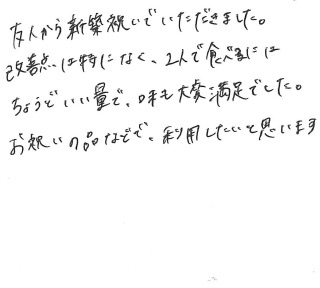 友人から新築祝いでいただきました。
改善点は特になく、2人で食べるには
ちょうどいい量で、味も大変満足でした。
お祝いの品などで、利用したいと思います